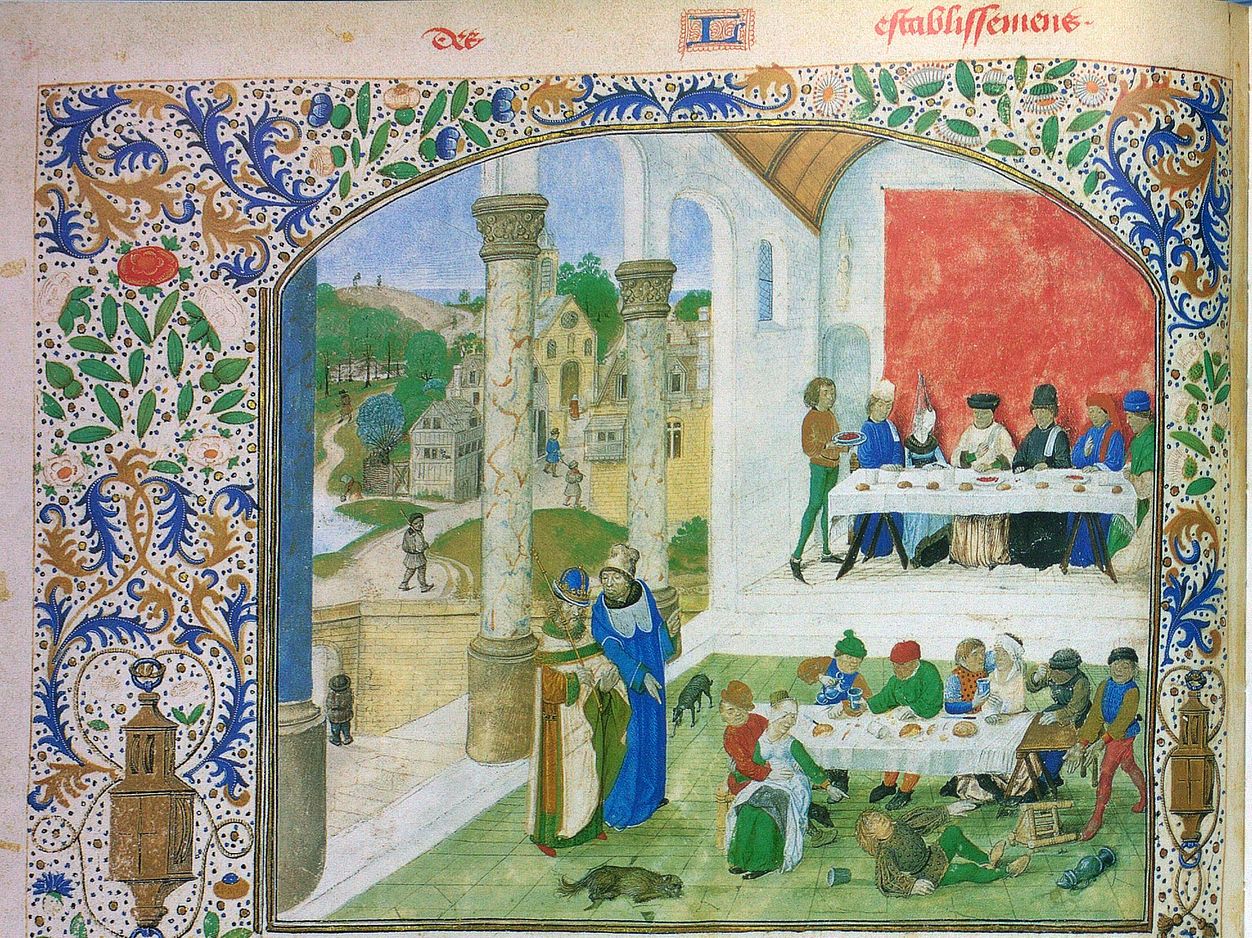 des L establissemens.